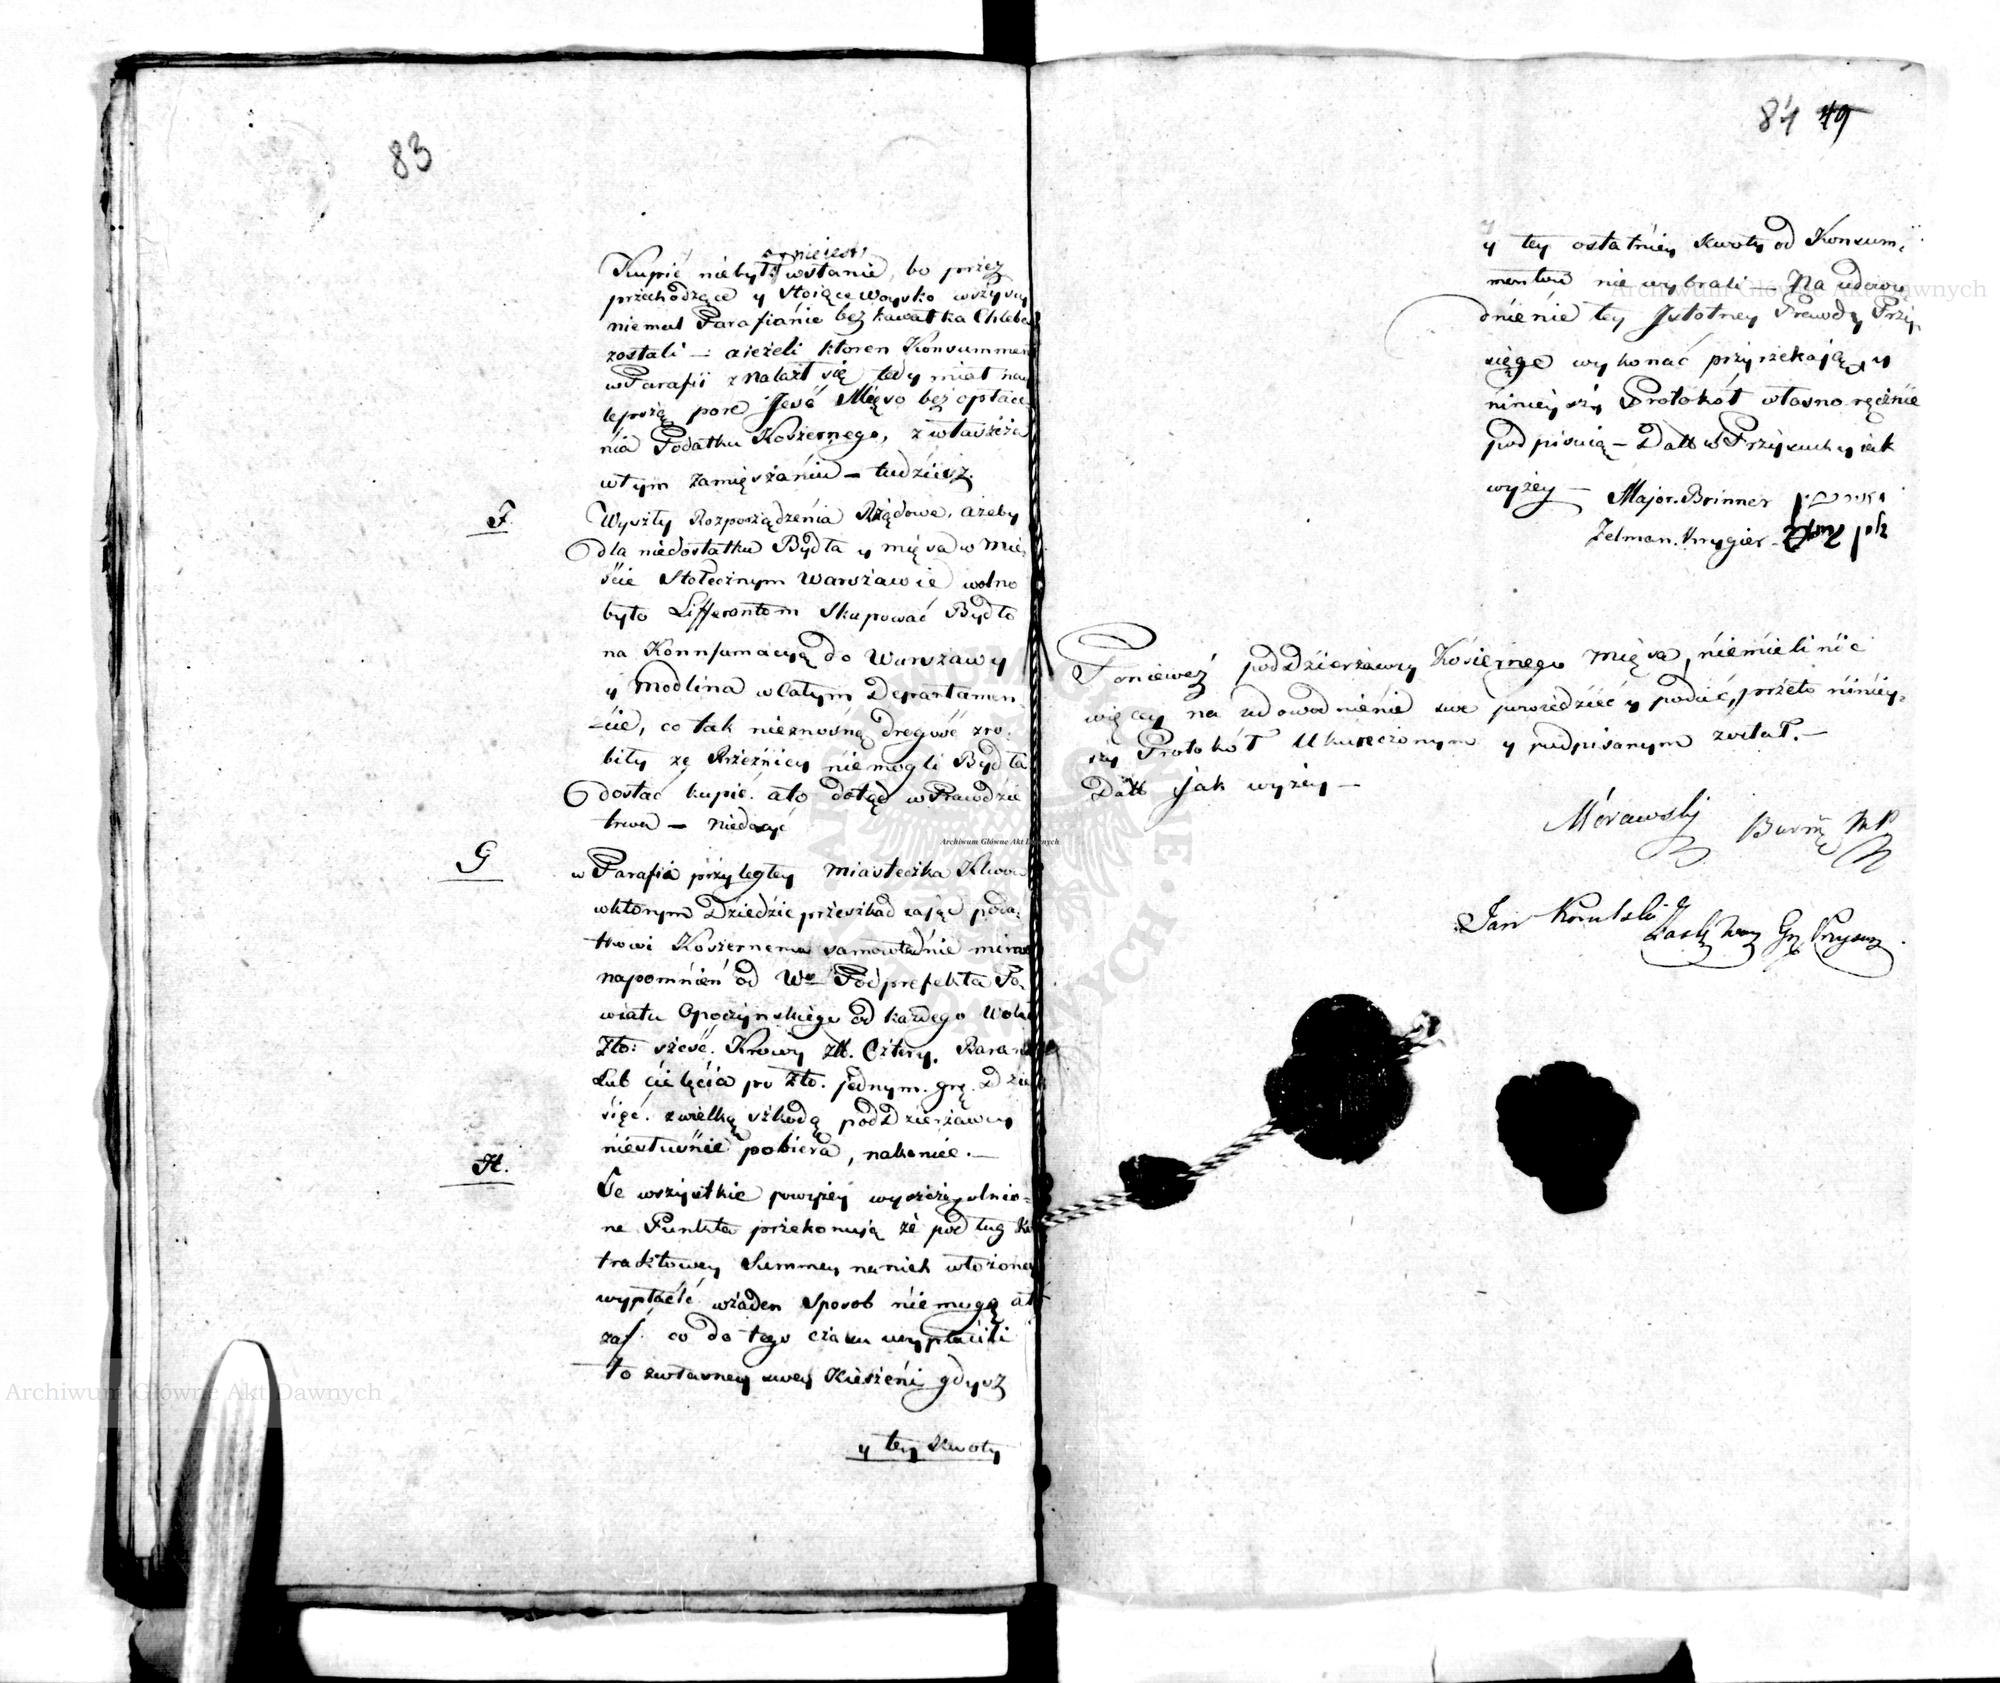 83
Kupić niebył y niejest wstanie, bo przez
przechodzące y stoiące woysko wszyscy
niemal Parafiánie bez kawałka Chleba
zostali — a ieżeli ktoren Konsummen
w Parafii znalazł się tedy miał nay
lepszą pore Jeść Mięso bez opłace
nia Podatku Koszernego, zwłaszcza
wtym zamięszániu — tudzież.
F.
Wyszły Rozporządzénia Rządowe, ażeby
dla niedostatku Bydła y mięsa w Mie
ście Stołecznym Warszawie wolno
było Lifferantom Skupować Bydło
na Konnsumacyą do Warszawy
y Modlina w Całym Departamen
cie, co tak nieznosną drogość zro
biły zę Rzeźnicy niemogli Bydła
dostać kupić. a to dotąd w Prawdzie
trwa — niedosyć
G
w Parafia przyległey Miasteczka Klwow
wktorym Dziedzic przeszkadzając poda
tkowi Koszernemu samowładnie mimo
napomnień od W° Podprefekta Po
wiatu Opoczynskiego od każdego Wołu
Zło: sześć. Krowy Złł. Cztery. Barana
Lub cielęcia po Zło. jednym. grę. Dzie
sięć. z wielką szkodą poddzierżawcy
niesłusnie pobiera, nakoniec. —
H.
Że wszystkie powyżey wyszczegulnio
ne Punkta przekonują że podług Ko
traktowey Summy nanich włożoney
wypłacić wżaden Sposob niemogą a t
zaś. co do tego czasu wypłacili
to zwłasney swey Kieszeni gdysz
y tey Kwoty
84 49
y tey ostatniey Kwoty od Konsum
mentow nie wybrali — Na udowo
dniénie tey Jstotney Prawdy Przy
sięge wykonać przyrzekają, y
niniéyszy Protokół własno ręcznie
podpisuią — Datt w Przysuchy jak
wyżey — Major. Brinner
Zelman. Krygier
Poniewéż poddzierżawcy Kosiernego Mięsa, niemieli nic
więcey na udowodnienie swe powiedzieć y podać, przeto niniey
szy Protokół Ukończonym y podpisanym został. —
Datt jak wyżey —
Morawsky
Jan
Archiwum Główne Akt Dawnych
Archiwum Główne Akt Dawnych
Archiwum Główne Akt Dawnych